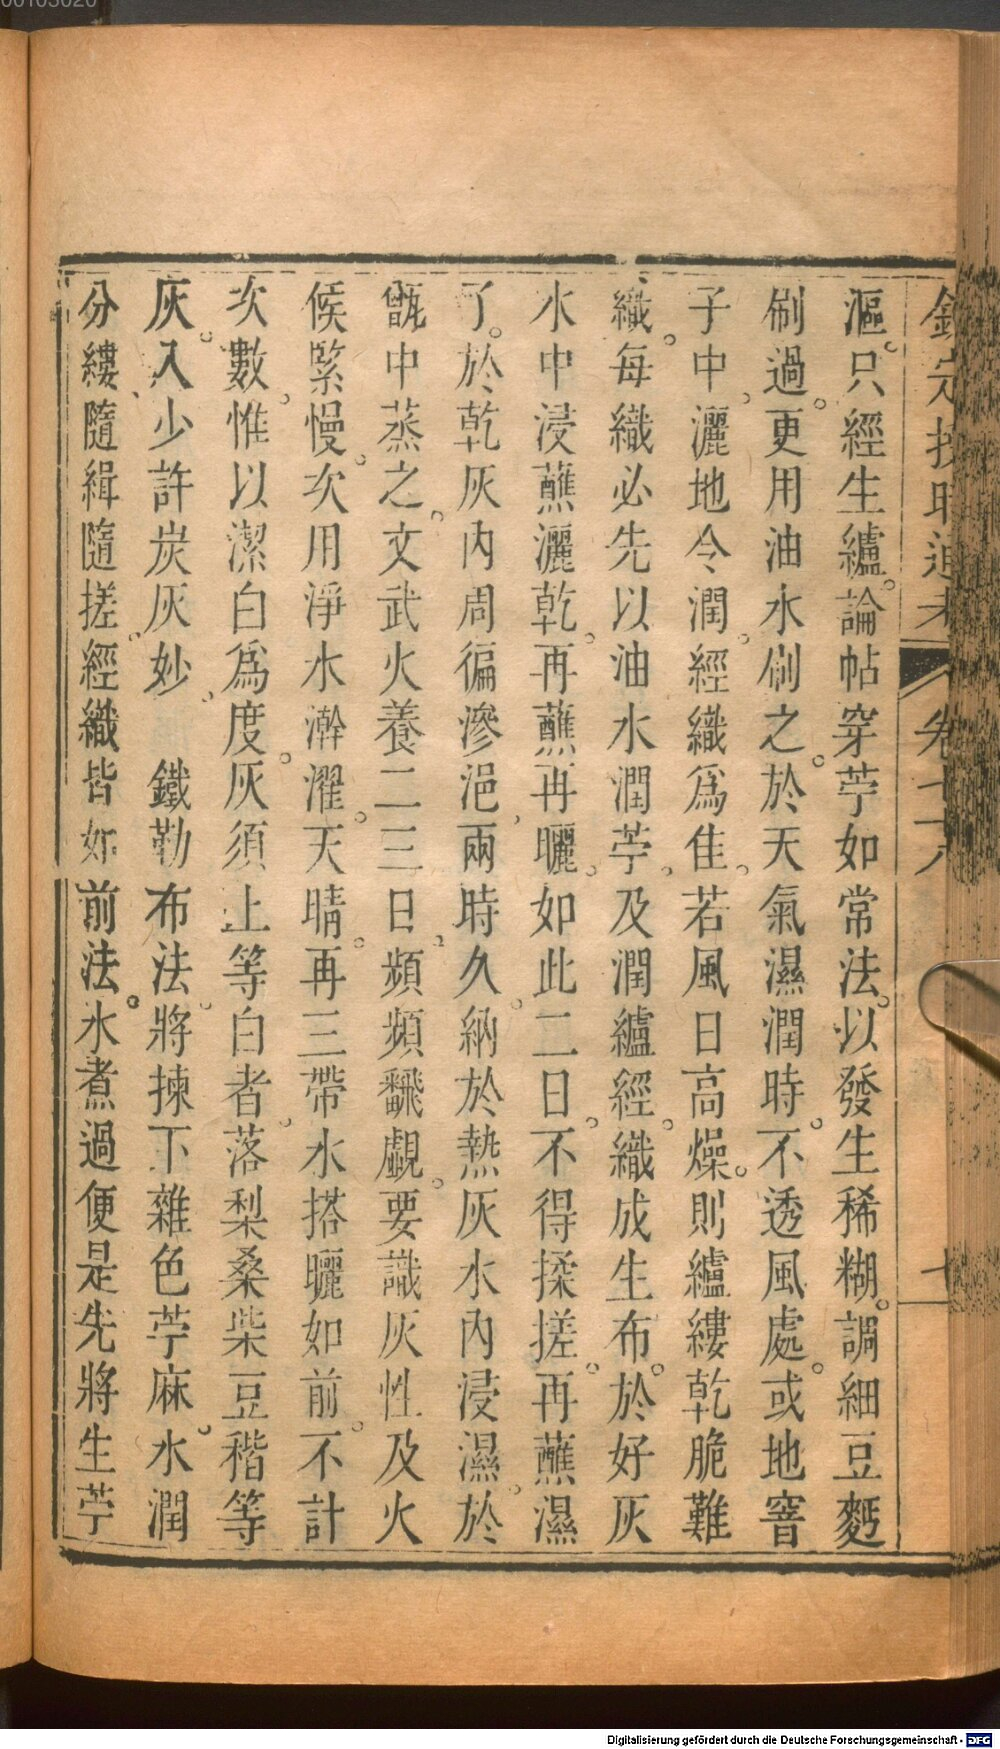 漚。只經生纑。論帖穿苧如常法。以發生稀糊。調細豆麪
刷過。更用油水刷之。於天氣濕潤時。不透風處。或地窨
子中、灑地令潤。經織爲佳。若風日高燥。則纑縷乾脆難
織。每織必先以油水潤苧。及潤纑經。織成生布。於好灰
水中浸蘸灑乾。再蘸再曬。如此二日。不得揉搓。再蘸濕
了。於乾灰內周徧滲浥、兩時久。納於熱灰水內浸濕。於
甑中蒸之。文武火養二三日。頻頻飜覷。要識灰性及火
候緊慢。次用淨水澣濯。天晴。再三帶水搭曬如前。不計
次數。惟以潔白爲度。灰須上等白者。落梨桑柴豆稭等
灰。入少許炭灰妙。　鐵勒布法。將揀下雜色苧麻。水潤
分縷、隨緝隨搓。經織皆如前法。水煮過便是。先將生苧
卷七十八
Digitalisierung gefördert durch die Deutsche Forschungsgemeinschaft - DFG